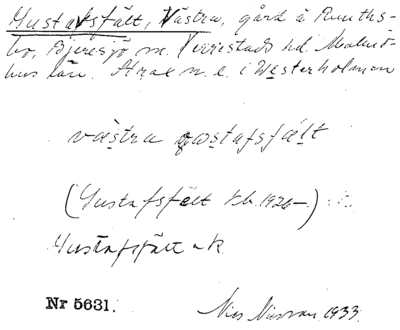 Gustafsfält, Västra, gård å Ruuths-
bo, Bjeresjö sn. Herrestads hd. Malmö-
hus län. Strax n.e. i Westerholmen
västra gustafsfält
(Gustafsfält kb. 1926—)
Gustafsfält ek.
Nr 5631.
Nils Nilsson 1933.